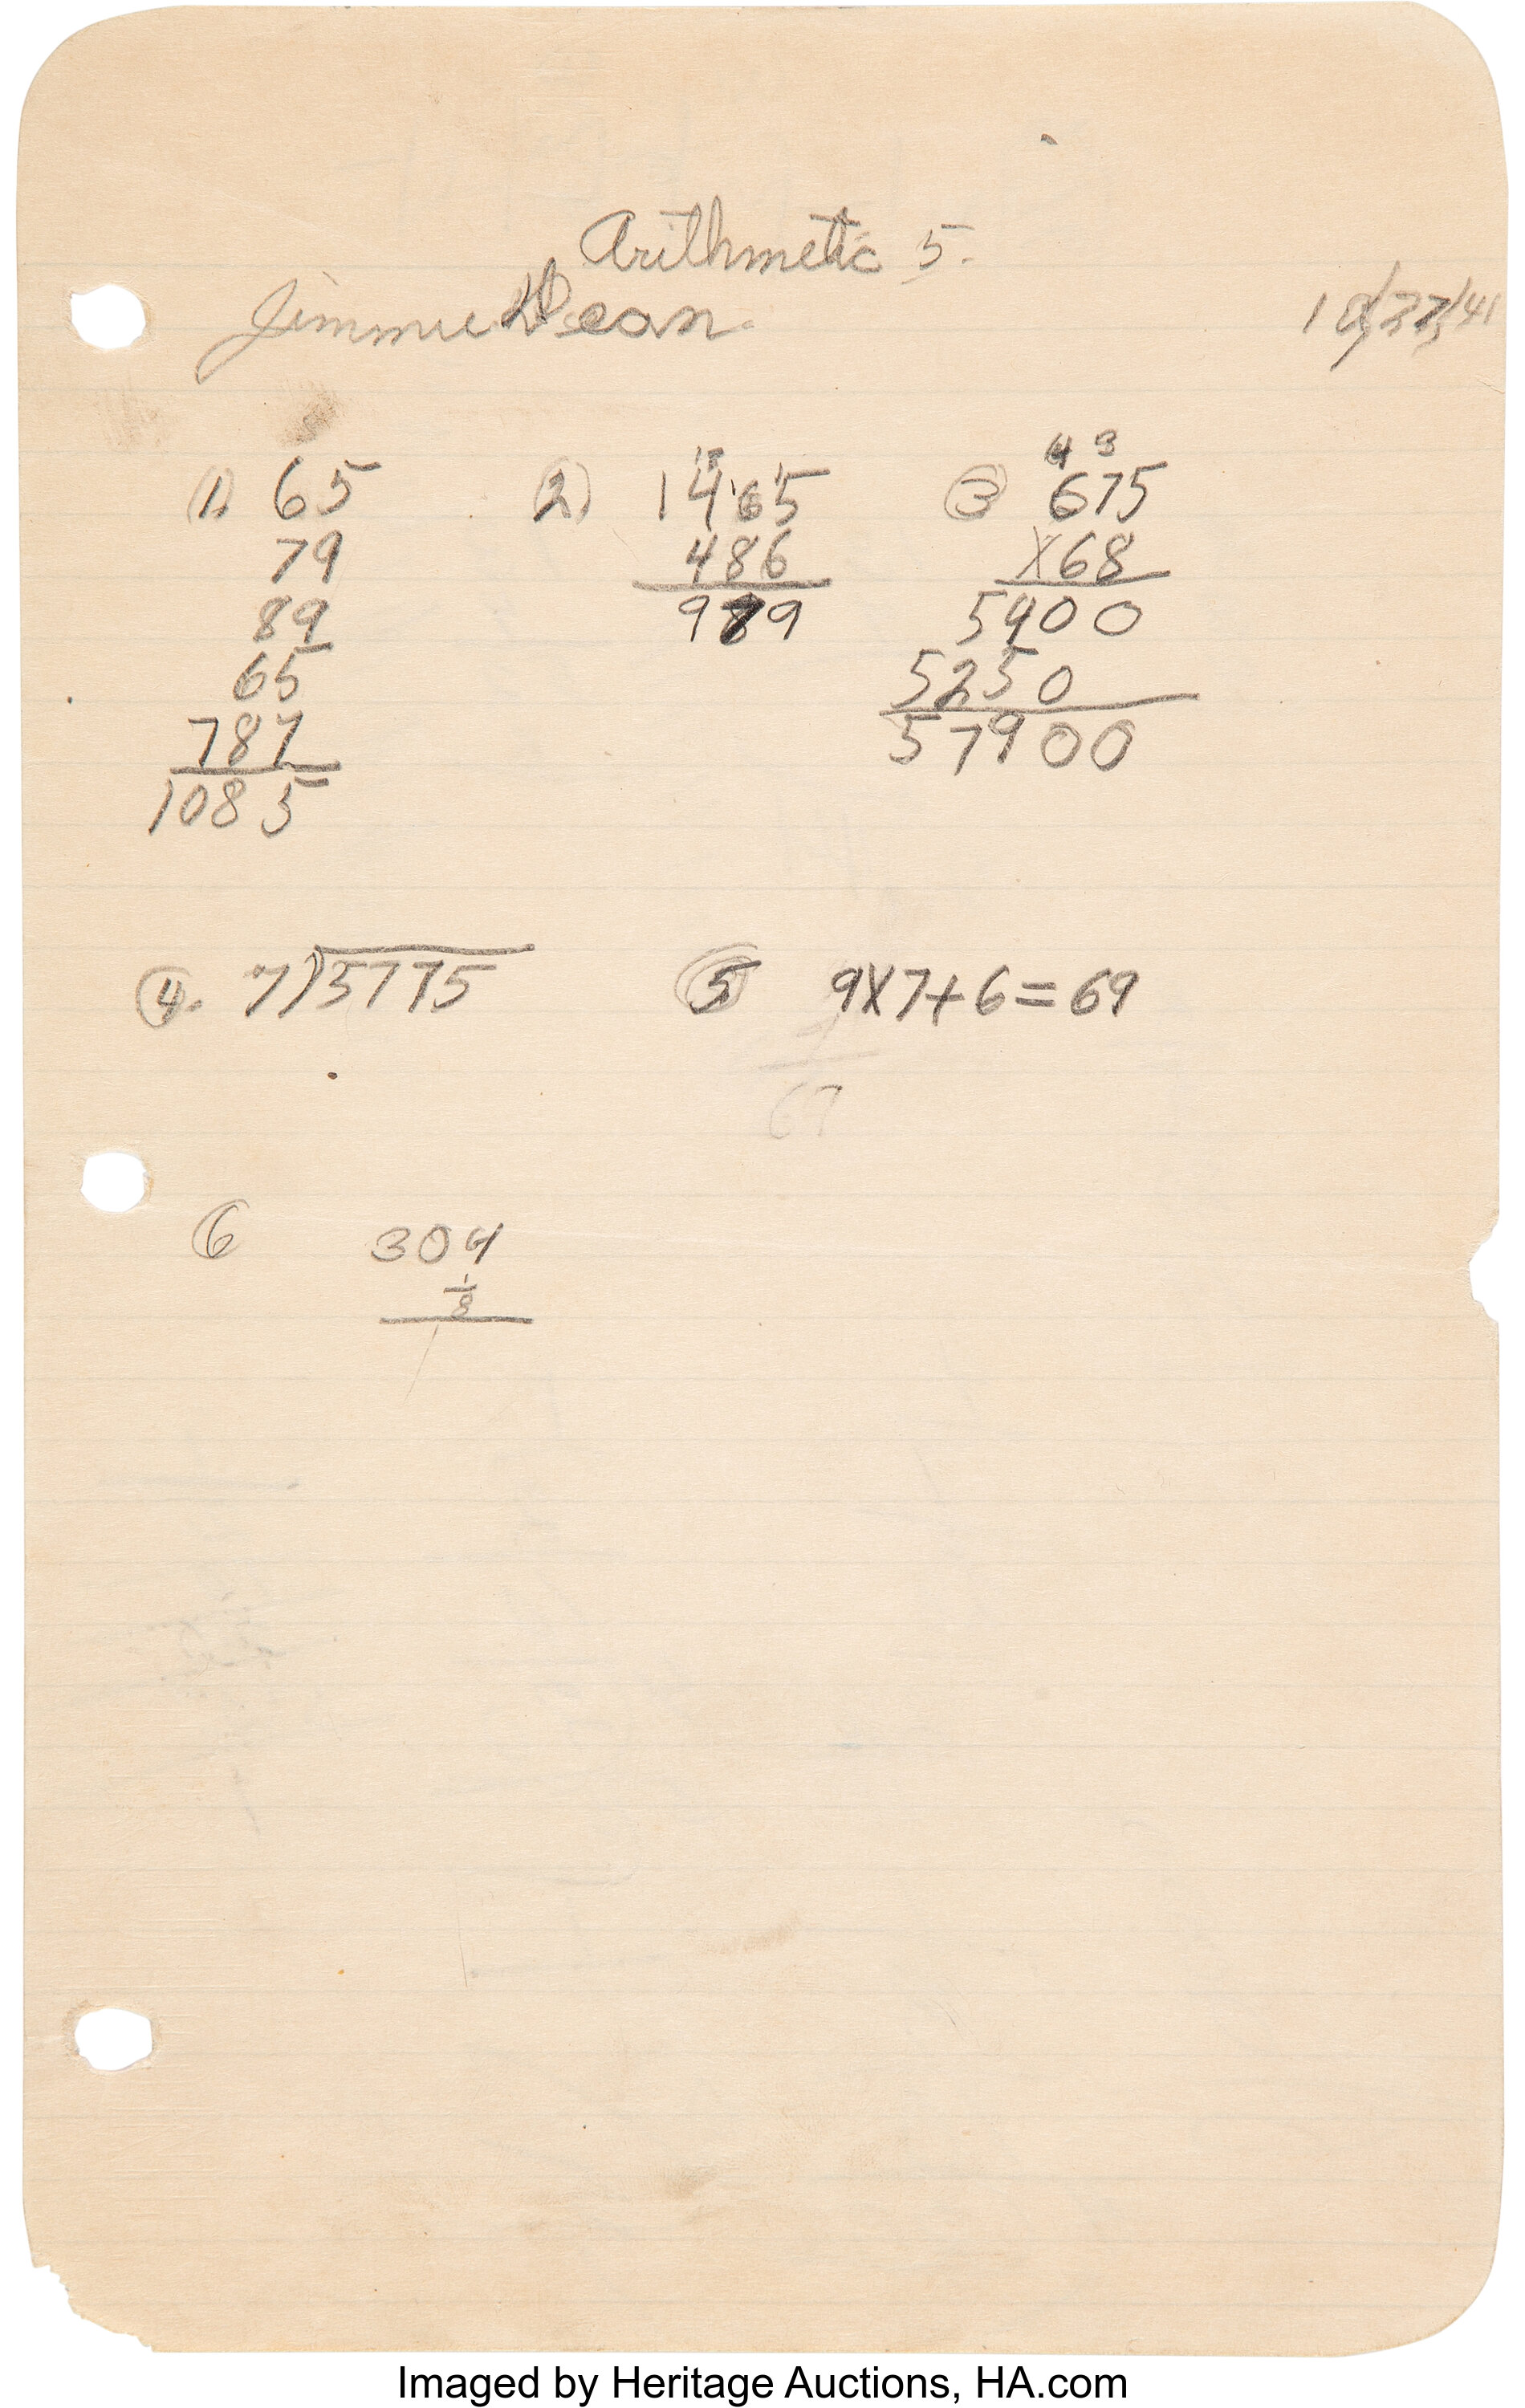 Arithmetic 5.
Jimmie Dean
10/27/41
(1) 65
79
89
65
787
1085
(2) 1465
486
979
(3) 675
X68
5400
5250
57900
(4). 7)5775
(5) 9X7+6=69
67
(6) 304
1/8
Imaged by Heritage Auctions, HA.com